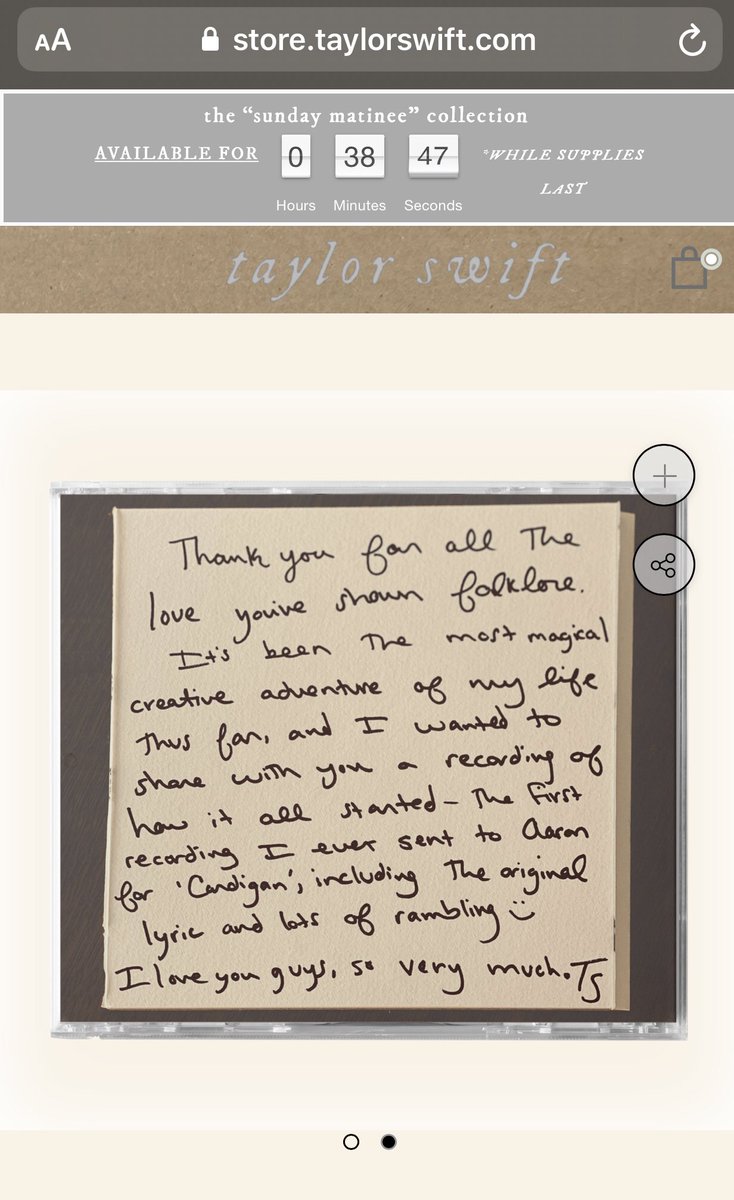 AA store.taylorswift.com
the “sunday matinee” collection
AVAILABLE FOR 0 38 47 *WHILE SUPPLIES
LAST
Hours Minutes Seconds
taylor swift
Thank you for all The
love you've shown folklore.
It's been The most magical
creative adventure of my life
Thus far, and I wanted to
share with you a recording of
how it all started - The First
recording I ever sent to Aaron
for 'Cardigan', including The original
lyric and lots of rambling :)
I love you guys, so very much. TS